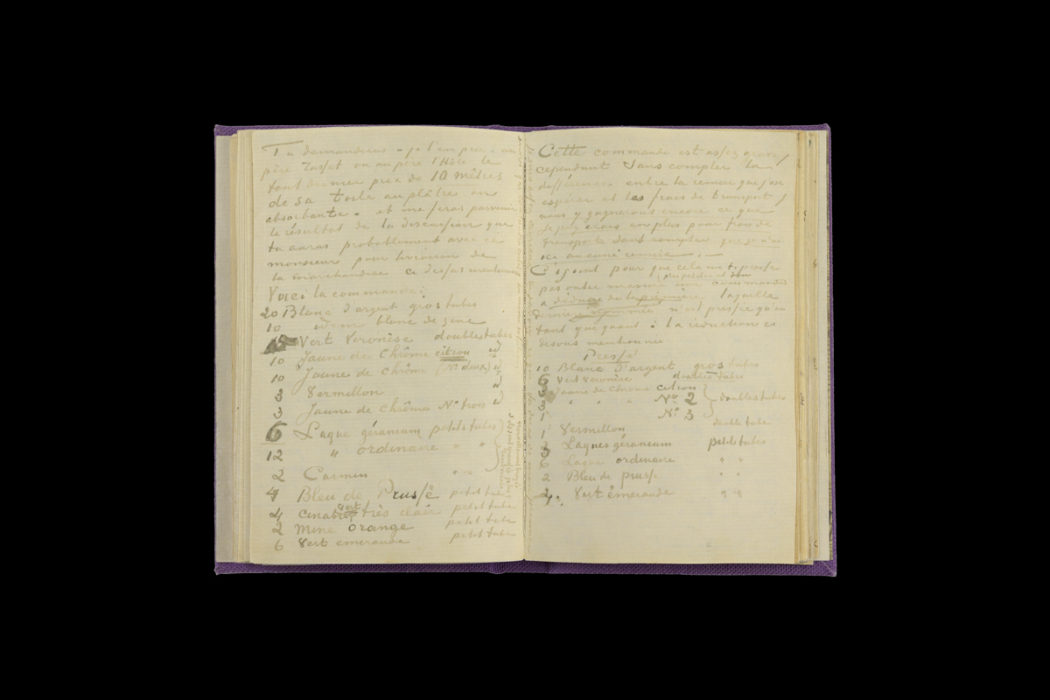 Tu demanderas - je t'en prie - au
père Tasset ou au père l'Hôte le
tout dernier prix de 10 mètres
de sa toile au plâtre ou
absorbante. et me feras parvenir
le résultat de la discussion que
tu auras probablement avec ce
monsieur pour livraison de
la marchandise ci dessus mentionnée
Voici la commande:
20 Blanc d'argent gros tubes
10 blanc de zinc
15 Vert Veronèse doubles tubes
10 Jaune de Chrôme citron id
10 Jaune de Chrôme (No deux) id
3 Vermillon id
3 Jaune de Chrôme No trois id
6 Laque géranium petits tubes
12 " ordinaire " "
2 Carmin " "
4 Bleu de Prusse petit tube
4 Cinabre vert très clair petit tube
2 Mine orange petit tube
6 Vert émeraude petit tube
Cette commande est assez grave
cependant sans compter la
différence entre la remise que j'ose
espérer et les frais de transport
nous y gagnerons encore ce que
je payerais en plus pour frais de
transports sans compter que je n'ai
ici aucune remise.
Ci joint pour que cela ne te presse
pas outre mesure une commande
plus pressée
a déduire de la première laquelle
dernière n'est pressée qu'en
tant que quant à la réduction ci
dessous mentionnée.
Pressé
10 Blanc d'argent gros tubes
6 Vert véronèse doubles tubes
3 Jaune de Chrome citron
3 " " " No 2 doubles tubes
1 No 3
1 Vermillon double tube
3 Laques géranium petits tubes
6 Laque ordinaire " "
2 Bleu de prusse " "
4. Vert émeraude " "